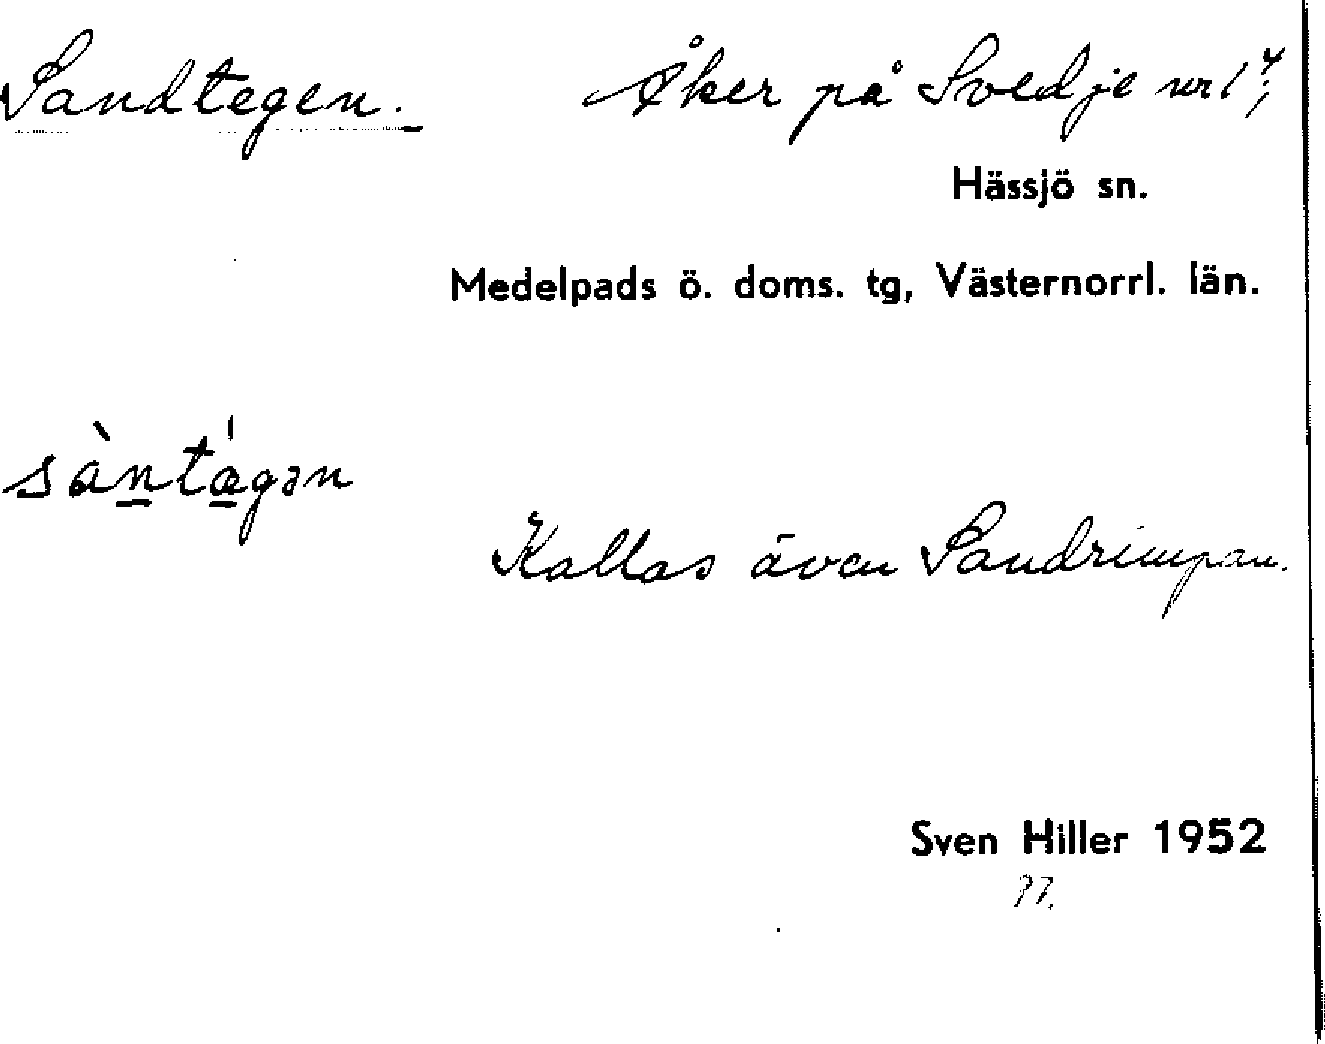 Sandtegen. Åker på Svedje nr 1
Hässjö sn.
Medelpads ö. doms. tg, Västernorrl. län.
sànt'ægən
Kallas även Sandrimpan.
Sven Hiller 1952